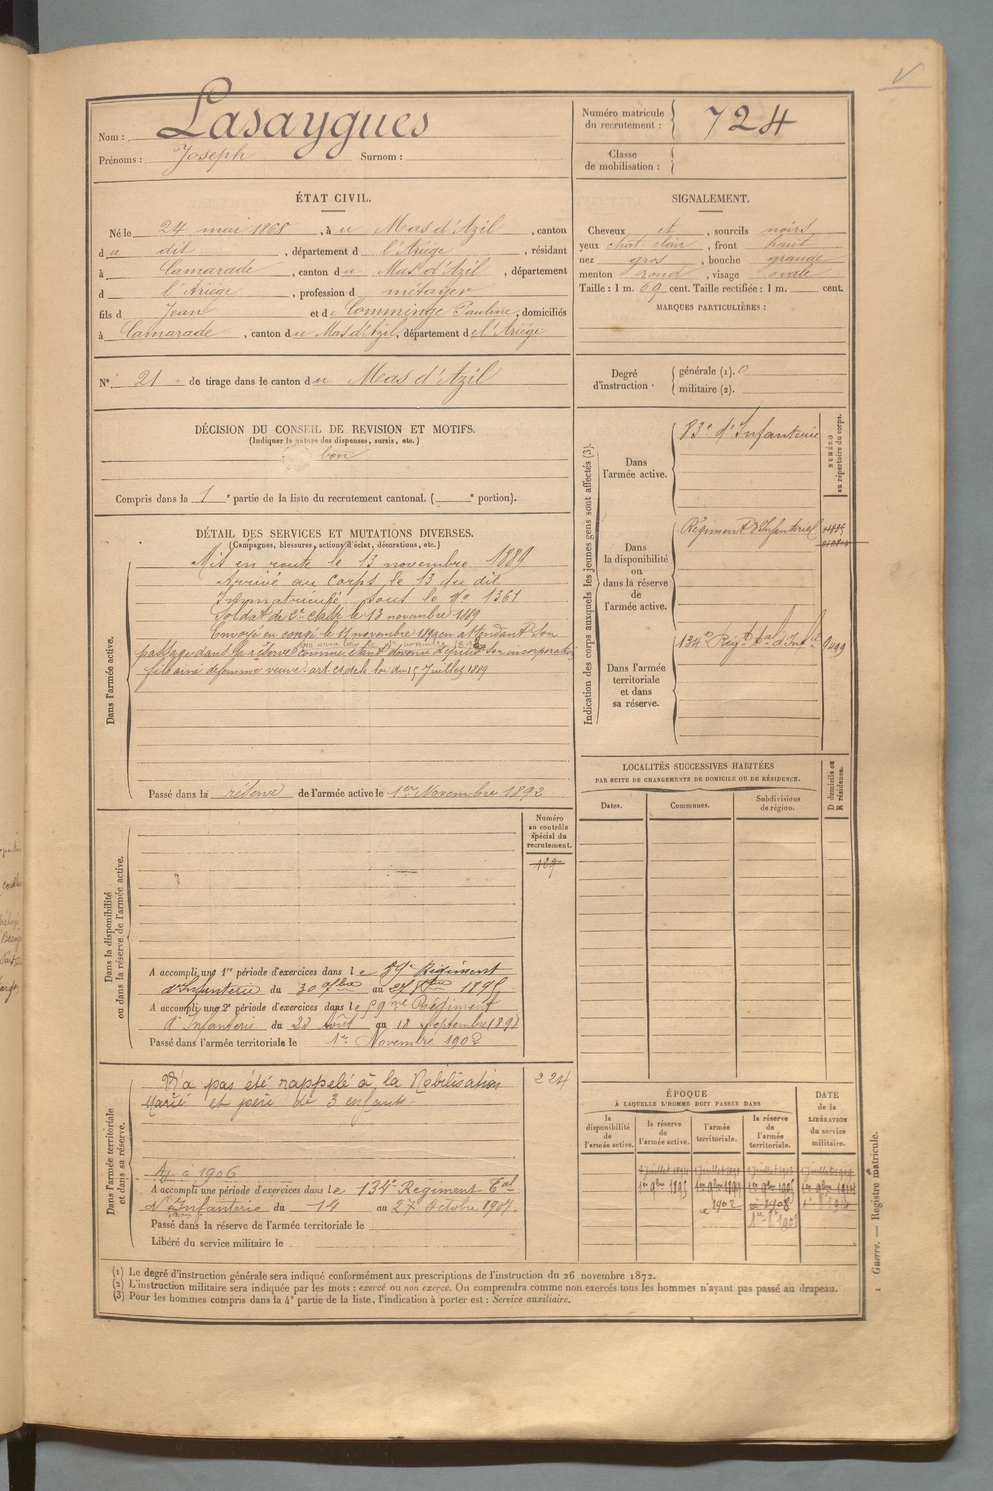 Nom : Lasaygues
Prénoms : Joseph Surnom :
Numéro matricule du recrutement : 724
Classe de mobilisation :
ÉTAT CIVIL.
Né le 24 mai 1868, à u Mas d'Azil, canton
d u dit, département d l'Ariège, résidant
à Camarade, canton d u Mas d'Azil, département
d l'Ariège, profession d métayer
fils d Jean et d e Comminge Pauline, domiciliés
à Camarade, canton d u Mas d'Azil, département d e l'Ariège
N° 21 de tirage dans le canton d u Mas d'Azil
SIGNALEMENT.
Cheveux et, sourcils noirs
yeux chât. clair, front haut
nez gros, bouche grande
menton rond, visage ovale
Taille : 1 m. 69 cent. Taille rectifiée : 1 m. cent.
MARQUES PARTICULIÈRES :
Degré d'instruction . générale (1). 0
militaire (2).
DÉCISION DU CONSEIL DE REVISION ET MOTIFS.
(Indiquer la nature des dispenses, sursis, etc.)
bon
Compris dans la 1e partie de la liste du recrutement cantonal. ( e portion).
DÉTAIL DES SERVICES ET MUTATIONS DIVERSES.
(Campagnes, blessures, actions d'éclat, décorations, etc.)
Dans l'armée active.
Mis en route le 13 novembre 1889
Arrivé au corps le 13 du dit
Immatriculé sous le No 1361
Soldat de 2e classe le 13 novembre 1889
Envoyé en congé le 11 novembre 1890 en attendant son
passage dans la réserve comme étant devenu depuis son incorporation
fils aîné de femme veuve : art. 21 de la loi du 15 Juillet 1889
Passé dans la réserve de l'armée active le 1er Novembre 1892
Indication des corps auxquels les jeunes gens sont affectés (3).
NUMÉRO au répertoire du corps.
Dans l'armée active.
83e d'Infanterie
Dans la disponibilité ou dans la réserve de l'armée active.
Régiment d'Infanterie
Dans l'armée territoriale et dans sa réserve.
134e Régt tal d'Infie
LOCALITÉS SUCCESSIVES HABITÉES
PAR SUITE DE CHANGEMENTS DE DOMICILE OU DE RÉSIDENCE.
Dates. Communes. Subdivisions de région.
D domicile ou R résidence.
Dans la disponibilité ou dans la réserve de l'armée active.
Numéro au contrôle spécial du recrutement.
A accompli une 1re période d'exercices dans l e Régiment
d'Infanterie du 30 7bre au 27 8bre 1895
A accompli une 2e période d'exercices dans l e 59me Régiment
d'Infanterie du 22 Août au 18 Septembre 1898
Passé dans l'armée territoriale le 1er Novembre 1902
Dans l'armée territoriale et dans sa réserve.
N'a pas été rappelé à la Mobilisation 224
Marié et père de 3 enfants
Aj. à 1906
A accompli une période d'exercices dans l e 134e Régiment Tal
d'Infanterie du 14 au 27 Octobre 1907.
Passé dans la réserve de l'armée territoriale le
Libéré du service militaire le .
ÉPOQUE
À LAQUELLE L'HOMME DOIT PASSER DANS
DATE de la LIBÉRATION du service militaire.
la disponibilité de l'armée active.
la réserve de l'armée active.
l'armée territoriale.
la réserve de l'armée territoriale.
(1) Le degré d'instruction générale sera indiqué conformément aux prescriptions de l'instruction du 26 novembre 1872.
(2) L'instruction militaire sera indiquée par les mots : exercé ou non exercé. On comprendra comme non exercés tous les hommes n'ayant pas passé au drapeau.
(3) Pour les hommes compris dans la 4e partie de la liste, l'indication à porter est : Service auxiliaire.
Guerre. — Registre matricule.